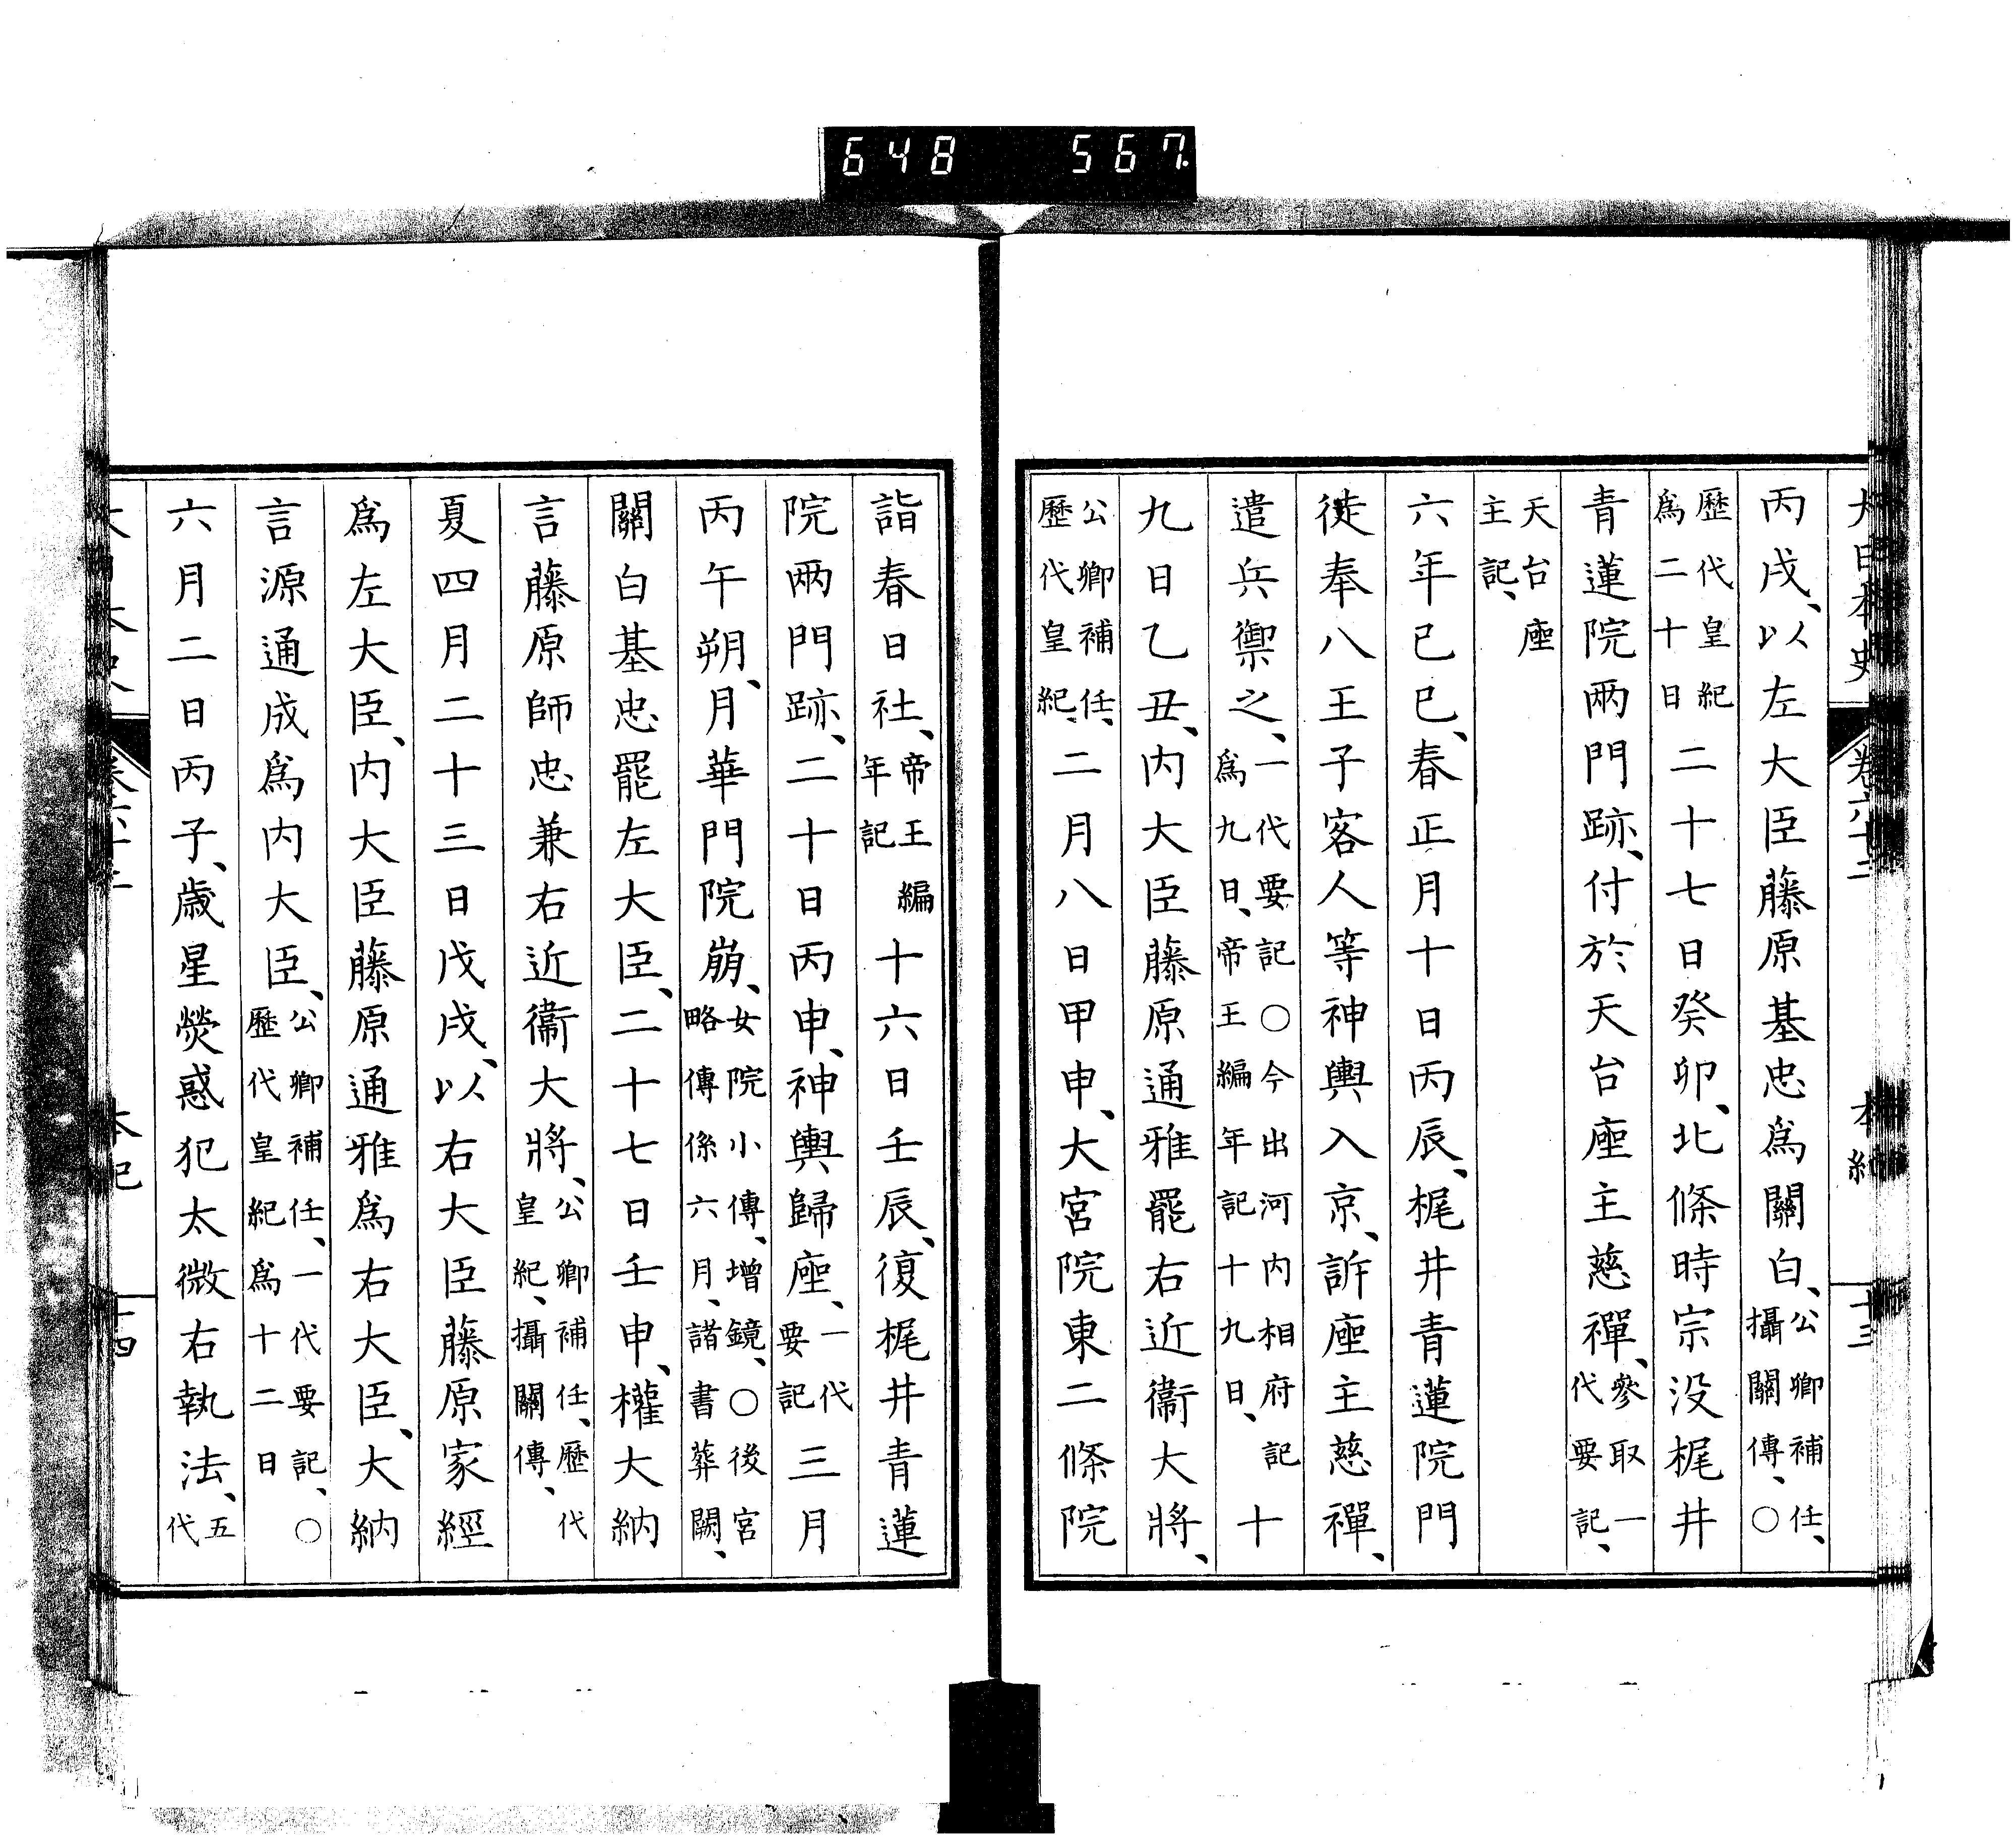 648 567.
大日本史 卷六十二 本紀 十三
丙戌、以左大臣藤原基忠爲關白、公卿補任、攝關傳、〇
歷代皇紀爲二十日二十七日癸卯、北條時宗没梶井
青蓮院兩門跡、付於天台座主慈禪、參取一代要記、
天台座主記、
六年己巳、春正月十日丙辰、梶井青蓮院門
徒奉八王子客人等神輿入京、訴座主慈禪、
遣兵禦之、一代要記〇今出河内相府記爲九日、帝王編年記十九日、十
九日乙丑、内大臣藤原通雅罷右近衞大將、
公卿補任、歷代皇紀、二月八日甲申、大宮院東二條院
詣春日社、帝王編年記十六日壬辰、復梶井青蓮
院兩門跡、二十日丙申、神輿歸座、一代要記三月
丙午朔、月華門院崩、女院小傳、增鏡、〇後宮略傳係六月、諸書葬闕、
關白基忠罷左大臣、二十七日壬申、權大納
言藤原師忠兼右近衞大將、公卿補任、歷代皇紀、攝關傳、
夏四月二十三日戊戌、以右大臣藤原家經
爲左大臣、内大臣藤原通雅爲右大臣、大納
言源通成爲内大臣、公卿補任、一代要記、〇歷代皇紀爲十二日
六月二日丙子、歲星熒惑犯太微右執法、五代